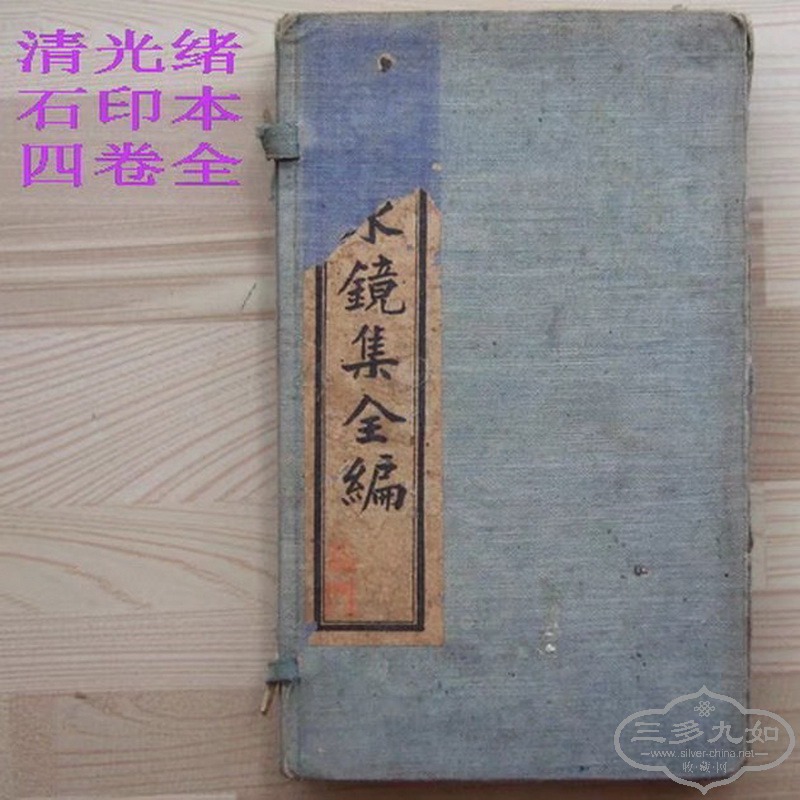 清光绪
石印本
四卷全
水鏡集全編
三多九如
www.silver-china.net
收·藏·网